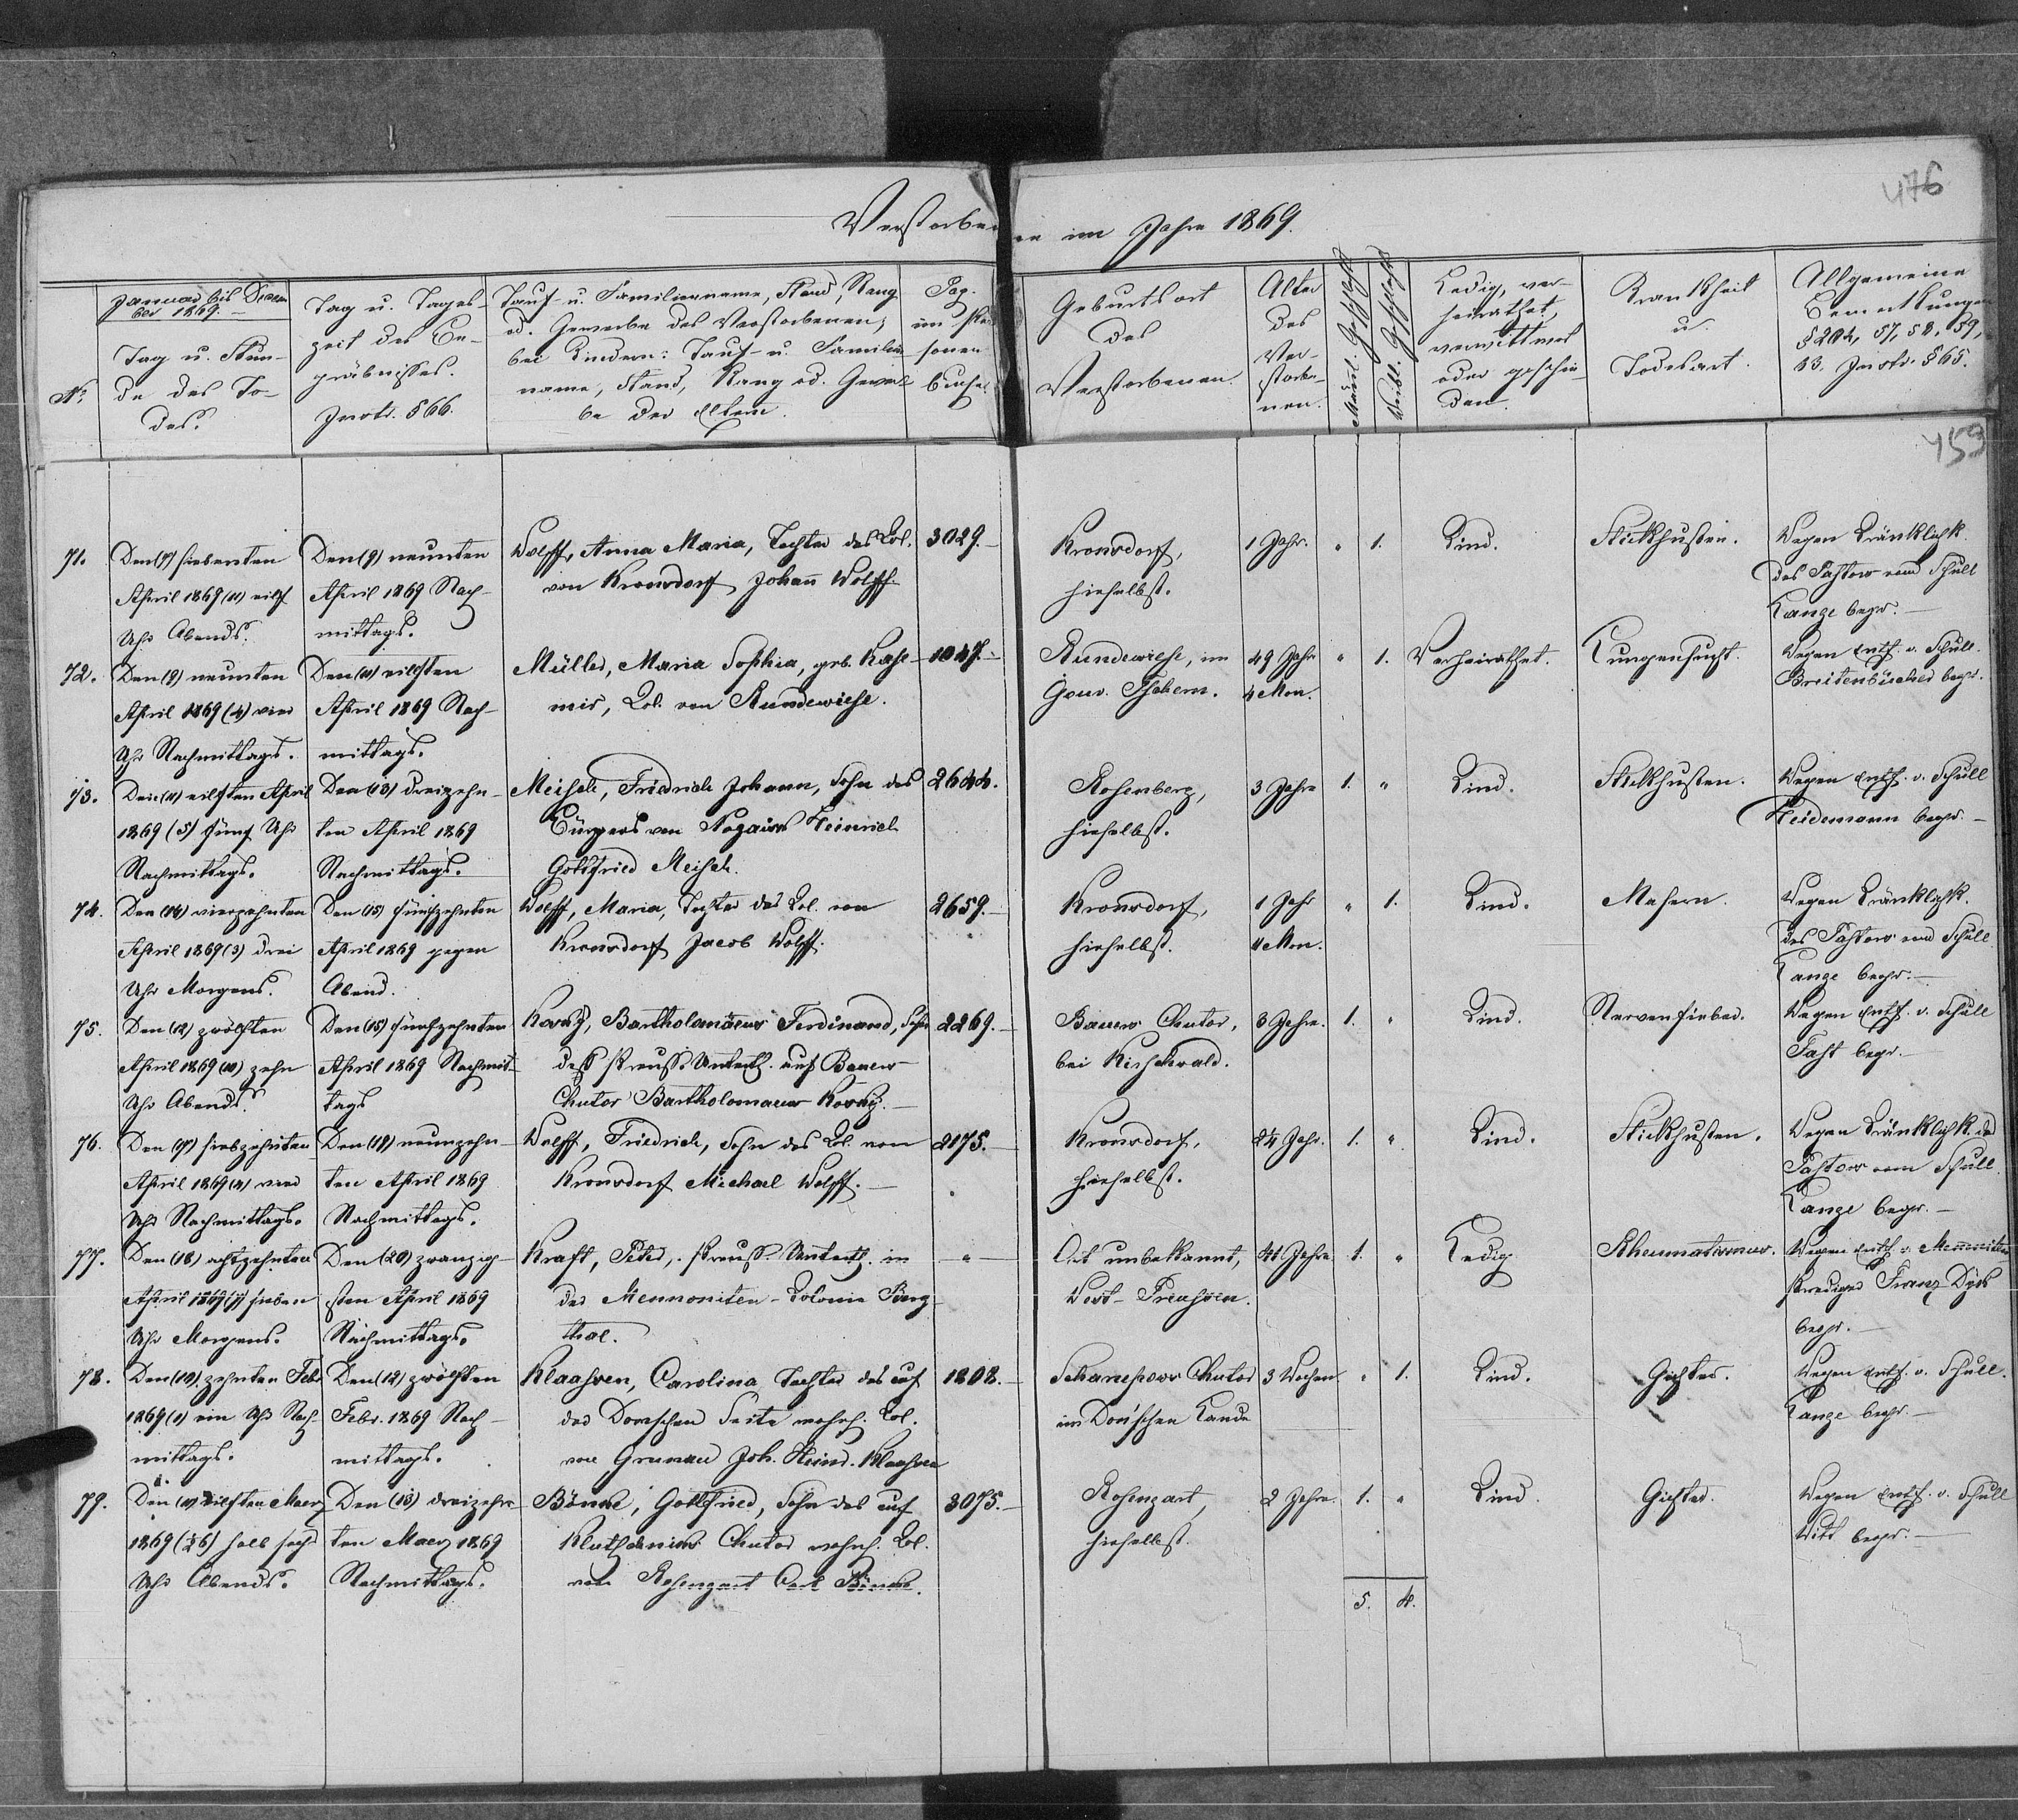 476
Verstorbene im Jahre 1869.
No
Januar bis Decem
ber 1869.
Tag u. Stun-
de des To-
des.
Tag u. Tages-
zeit des Be-
gräbnisses.
Instr. § 66.
Tauf- u. Familienname, Stand, Rang
od. Gewerbe des Verstorbenen;
bei Kindern: Tauf- u. Familien
name, Stand, Rang od. Gewer
be der Eltern.
Pag.
im Per
sonen
buche.
Geburtsort
des
Verstorbenen.
Alter
des
Ver-
storbe-
nen.
Männl. Geschlecht
Weibl. Geschlecht
Ledig, ver-
heirathet,
verwittwet
oder geschie-
den.
Krankheit
u.
Todesart.
Allgemeine
Bemerkungen
§ 204, 57, 58, 59,
63. Instr. § 65.
453
71.
Den (7) siebenten
April 1869 (11) eilf
Uhr Abends.
Den (9) neunten
April 1869 Nach-
mittags.
Wolff, Anna Maria, Tochter des Col.
von Kronsdorf Johann Wolff
3029.
Kronsdorf,
hieselbst.
1 Jahr.
" 1.
Kind.
Stickhusten.
Wegen Kränklichk.
des Pastors vom Schull
Lange begr.
72.
Den (9) neunten
April 1869 (4) vier
Uhr Nachmittags.
Den (11) eilften
April 1869 Nach-
mittags.
Müller, Maria Sophia, geb.
Col. von Rundewiese.
1047.
Rundewiese, im
Gouv. Tschern.
49 Jahr
4 Mon.
" 1.
Verheirathet.
Lungensucht.
Wegen Entf. v. Schull.
Breitenbücher begr.
73.
Den (11) eilften April
1869 (5) fünf Uhr
Nachmittags.
Den (13) dreizehn-
ten April 1869
Nachmittags.
Meisch, Friedrich Johann, Sohn des
Bürgers von Nogaisk Heinrich
Gottfried Meisch.
2644.
Rosenberg,
hieselbst.
3 Jahre
1. "
Kind.
Stickhusten.
Wegen Entf. v. Schull
Heidemann begr.
74.
Den (14) vierzehnten
April 1869 (3) drei
Uhr Morgens.
Den (15) fünfzehnten
April 1869 gegen
Abend.
Wolff, Maria, Tochter des Col. von
Kronsdorf Jacob Wolff.
2659.
Kronsdorf,
hieselbst.
1 Jahr
4 Mon.
" 1.
Kind.
Masern.
Wegen Kränklichk.
des Pastors vom Schull
Lange begr.
75.
Den (12) zwölften
April 1869 (10) zehn
Uhr Abends.
Den (15) fünfzehnten
April 1869 Nachmit-
tags
Bartholomäus Ferdinand, Sohn
des preuss. Unterth. auf Bauers
Chutor Bartholomaeus
2269.
Bauers Chutor,
bei Kirschwald.
3 Jahre.
1. "
Kind.
Nervenfieber.
Wegen Entf. v. Schull
Fast begr.
76.
Den (17) siebzehnten
April 1869 (4) vier
Uhr Nachmittags.
Den (19) neunzehn-
ten April 1869
Nachmittags.
Wolff, Friedrich, Sohn des Col. von
Kronsdorf Michael Wolff.
2175.
Kronsdorf,
hieselbst.
Jahr.
1. "
Kind.
Stickhusten.
Wegen Kränklichk. des
Pastors vom Schull.
Lange begr.
77.
Den (18) achtzehnten
April 1869 (7) sieben
Uhr Morgens.
Den (20) zwanzig-
sten April 1869
Nachmittags.
Kraft, Peter, preuss. Unterth. in
der Mennoniten-Colonie Berg
thal.
"
Ort unbekannt,
West-Preussen.
41 Jahre.
1. "
Ledig
Rheumatismus.
Wegen Entf. v. Mennoniten
Prediger Franz Dyck
begr.
78.
Den (10) zehnten Febr.
1869 (1) ein Uhr Nach-
mittags.
Den (12) zwölften
Febr. 1869 Nach-
mittags.
Klaassen, Carolina Tochter des auf
der Donschen Seite wohnh. Col.
von Grunau Joh. Heinr. Klaassen
1808.
Chutor
im Don'schen Lande
3 Wochen
" 1.
Kind.
Gichter.
Wegen Entf. v. Schull.
Lange begr.
79.
Den (11) eilften Maerz
1869 (½6) halb sechs
Uhr Abends.
Den (13) dreizehn
ten Maerz 1869
Nachmittags.
Gottfried, Sohn des auf
Chutor wohnh. Col.
von Rosengart Carl
3075.
Rosengart,
hieselbst.
2 Jahre.
1. "
Kind.
Gichter.
Wegen Entf. v. Schull
Witt begr.
5. 4.